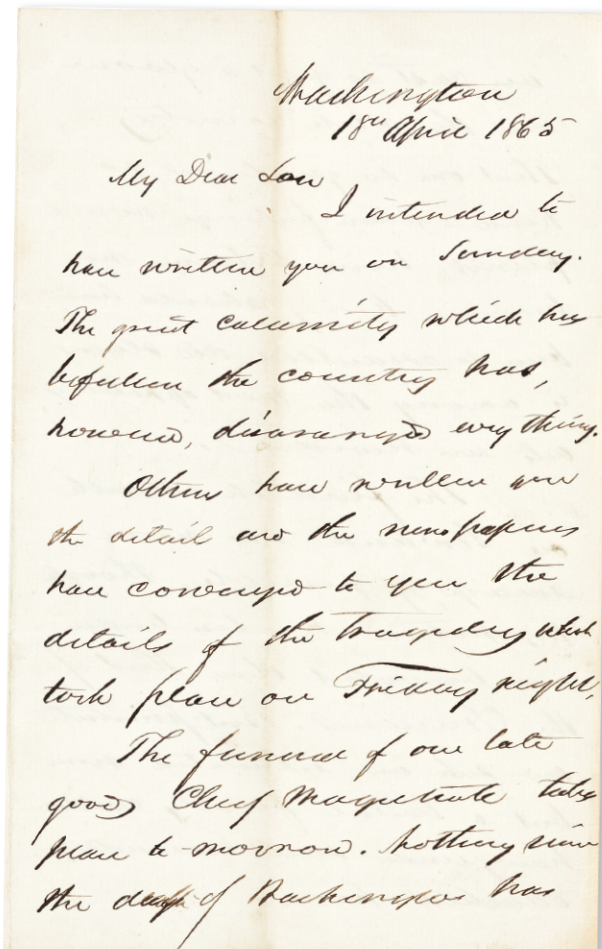 Washington
18th April 1865
My Dear Son
I intended to
have written you on Sunday.
The great calamity which has
befallen the country has,
however, disarranged everything.
Others have written you
the detail and the newspapers
have conveyed to you the
details of the tragedy which
took place on Friday night.
The funeral of our late
good Chief Magistrate takes
place to-morrow. Nothing since
the death of Washington has